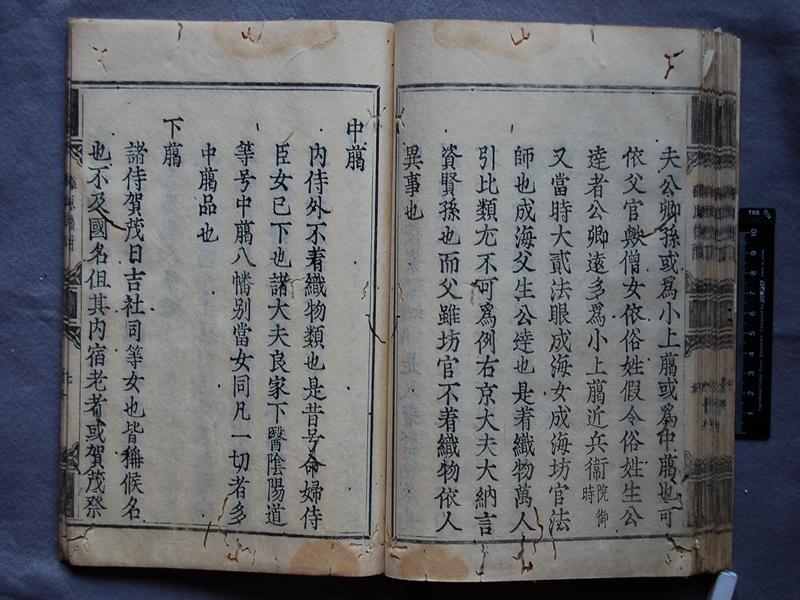 夫公卿孫或為小上﨟或為中﨟也可
依父官歟僧女依俗姓假令俗姓生公
達者公卿遠多為小上﨟近兵衞院御時
又當時大貳法眼成海女成海坊官法
師也成海父生公達也是着織物萬人
引比類尤不可為例右京大夫大納言
資賢孫也而父雖坊官不着織物依人
異事也
中﨟
内侍外不着織物類也是昔号命婦侍
臣女已下也諸大夫良家下醫陰陽道
等号中﨟八幡别當女同凡一切者多
中﨟品也
下﨟
諸侍賀茂日吉社司等女也皆稱候名
也不及國名但其内宿老者或賀茂祭